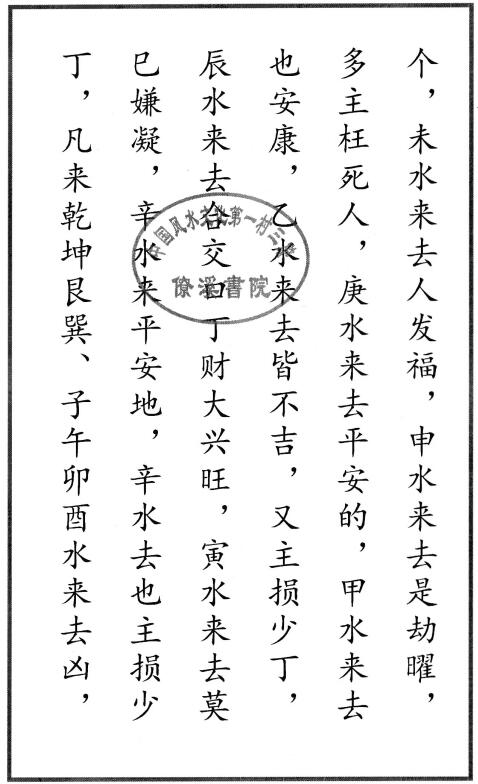 个，未水来去人发福，申水来去是劫曜，
多主枉死人，庚水来去平安的，甲水来去
也安康，乙水来去皆不吉，又主损少丁，
辰水来去合交曰丁财大兴旺，寅水来去莫
巳嫌凝，辛水来平安地，辛水去也主损少
丁，凡来乾坤艮巽、子午卯酉水来去凶，
中国风水文化第一村三僚
僚溪書院